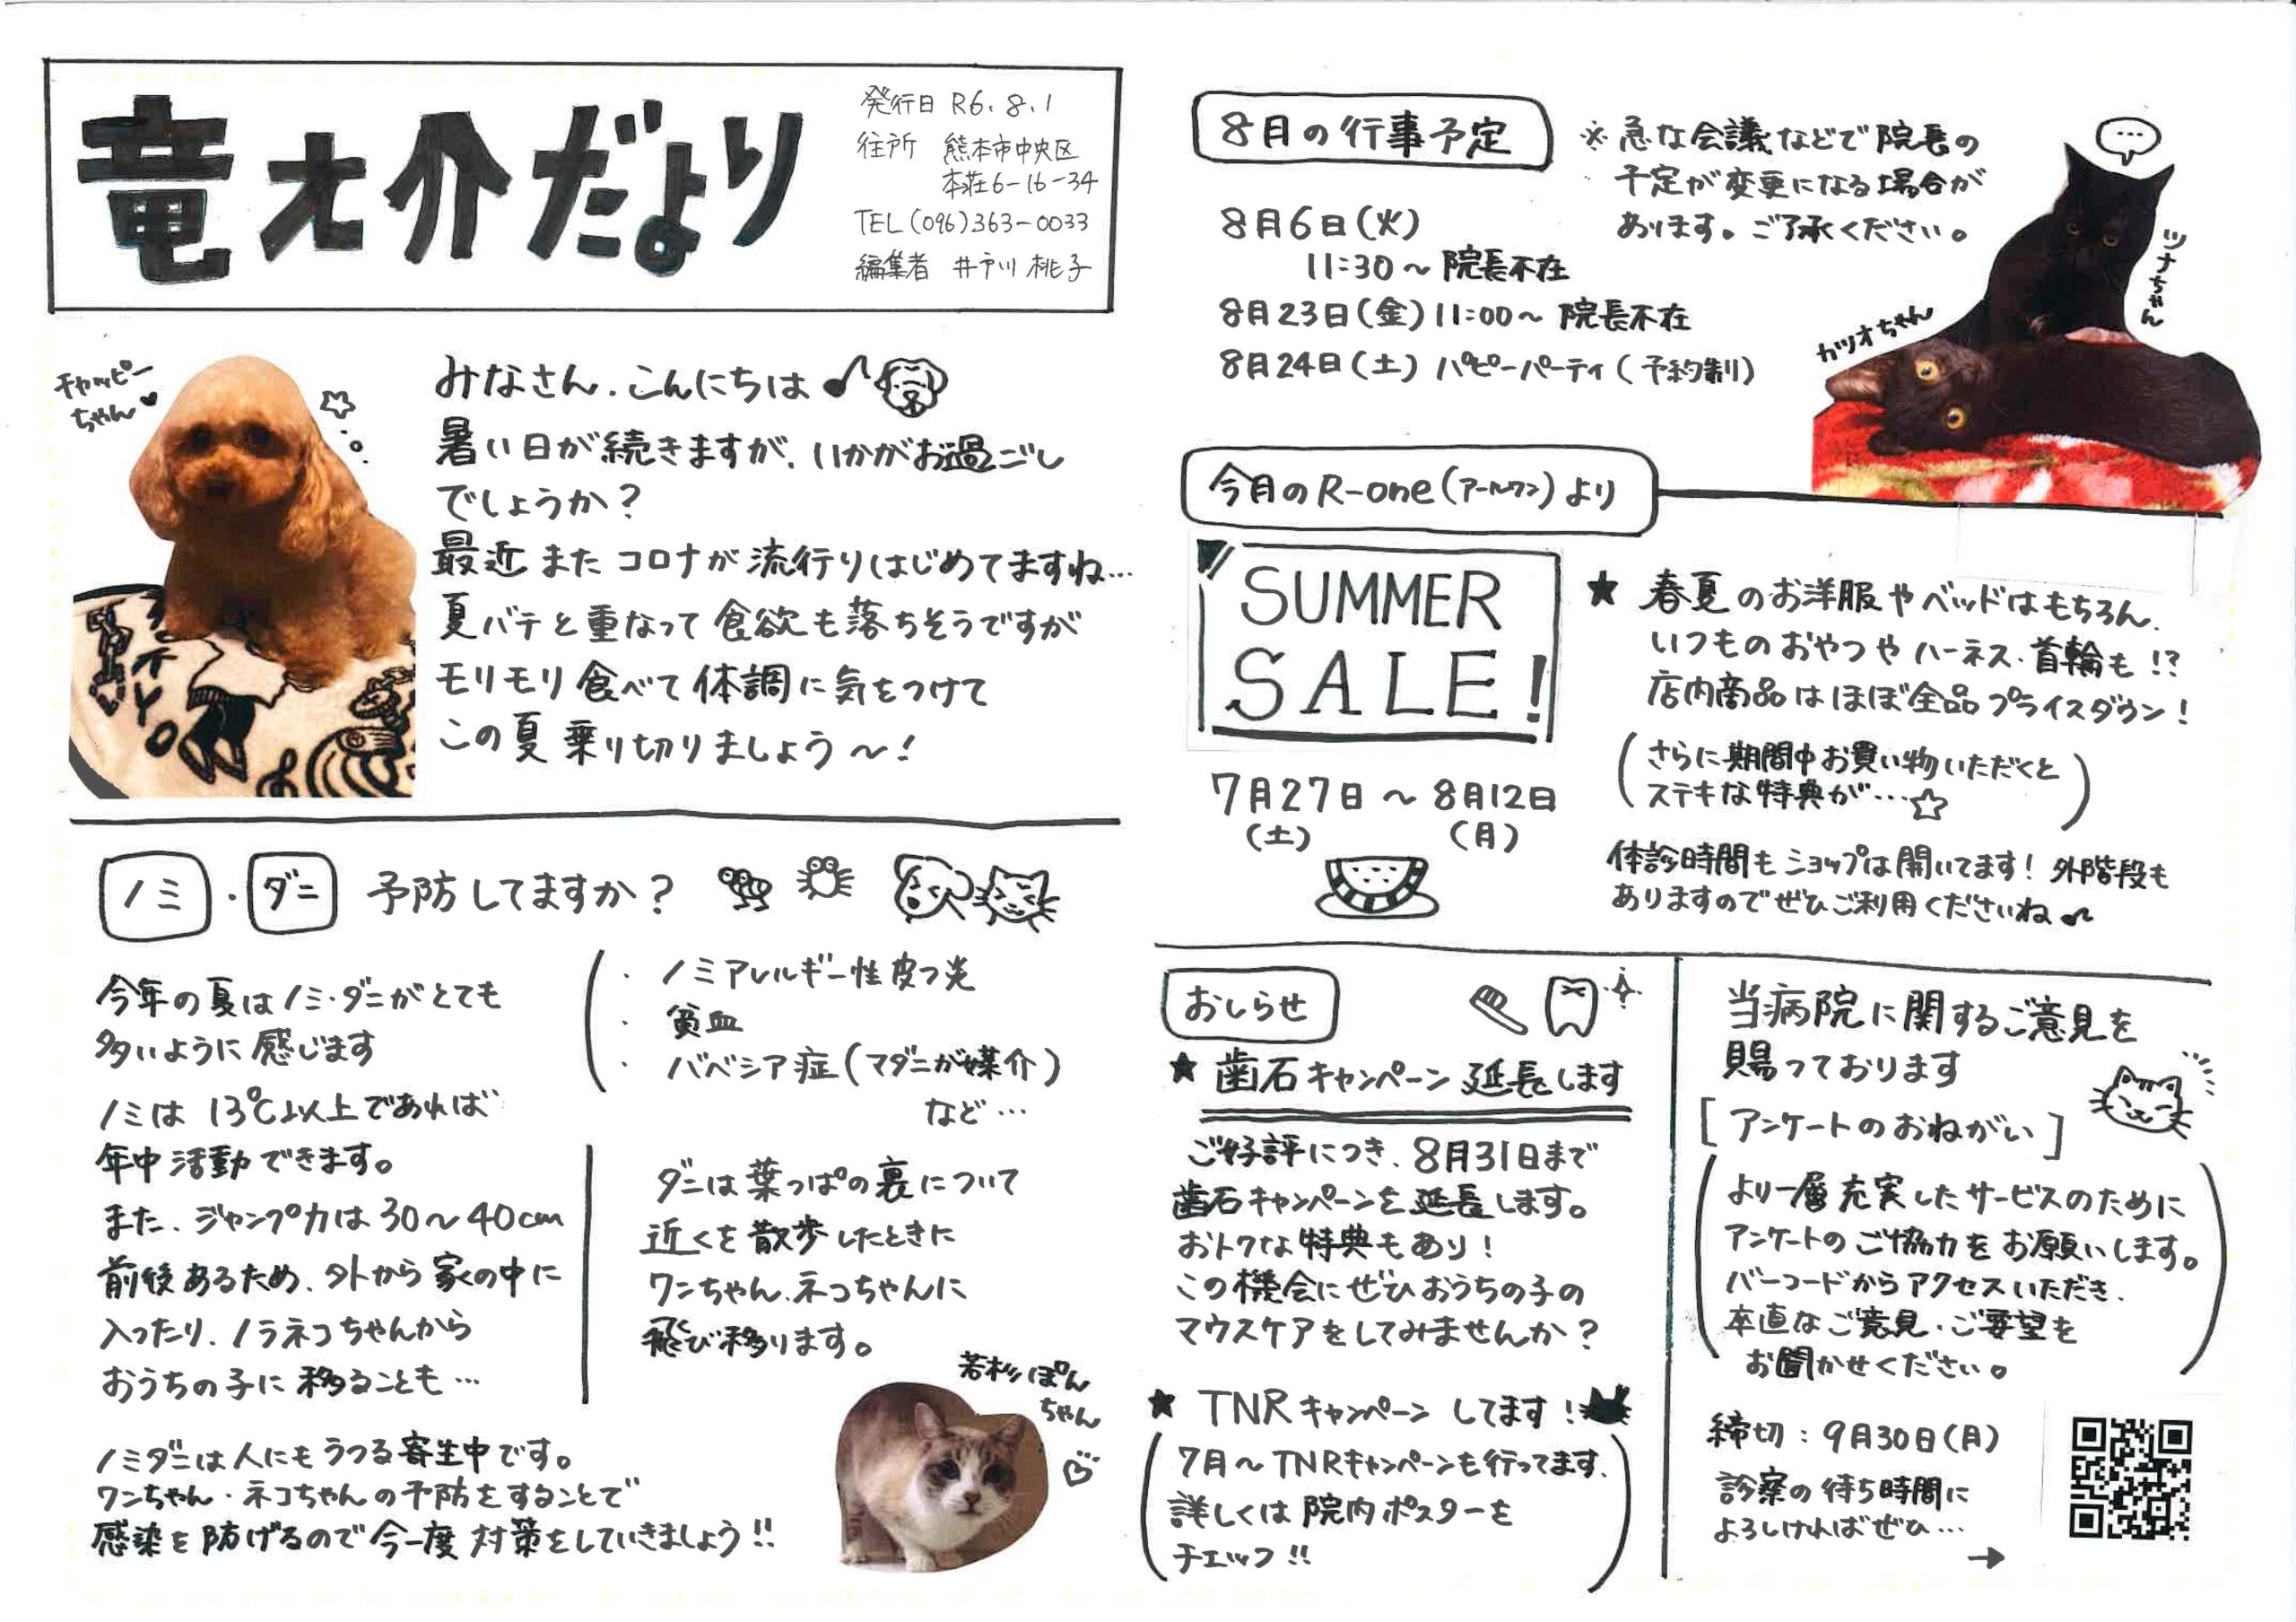 竜之介だより
発行日 R6.8.1
住所 熊本市中央区
本荘6-16-34
TEL(096)363-0033
編集者 井戸川 桃子
チャッピー
ちゃん
みなさん、こんにちは♪
暑い日が続きますが、いかがお過ごし
でしょうか?
最近 また コロナが 流行りはじめてますね…
夏バテと重なって 食欲も落ちそうですが
モリモリ食べて 体調に気をつけて
この夏 乗り切りましょう～!
ノミ・ダニ 予防してますか?
今年の夏はノミ・ダニがとても
多いように感じます
ノミは 13℃以上であれば
年中活動できます。
また、ジャンプ力は30～40cm
前後あるため、外から家の中に
入ったり、ノラネコちゃんから
おうちの子に移ることも…
・ノミアレルギー性皮フ炎
・貧血
・バベシア症(マダニが媒介)
など…
ダニは葉っぱの裏について
近くを散歩したときに
ワンちゃん、ネコちゃんに
飛び移ります。
ノミダニは人にもうつる寄生中です。
ワンちゃん・ネコちゃんの予防をすることで
感染を防げるので今一度 対策をしていきましょう!!
若杉ぽん
ちゃん
8月の行事予定
※急な会議などで院長の
予定が変更になる場合が
あります。ご了承ください。
8月6日(火)
11:30～院長不在
8月23日(金)11:00～ 院長不在
8月24日(土) パピーパーティ(予約制)
…
ツナちゃん
カツオちゃん
今月のR-one(アールワン)より
SUMMER
SALE!
7月27日～8月12日
(土) (月)
★ 春夏のお洋服やベッドはもちろん、
いつものおやつやハーネス・首輪も!?
店内商品はほぼ全品プライスダウン!
(さらに期間中お買い物いただくと
ステキな特典が…☆)
休診時間もショップは開いてます! 外階段も
ありますのでぜひご利用くださいね♪
おしらせ
★歯石キャンペーン 延長します
ご好評につき、8月31日まで
歯石キャンペーンを延長します。
おトクな特典もあり!
この機会にぜひおうちの子の
マウスケアをしてみませんか?
★ TNRキャンペーン してます!
(7月～TNRキャンペーンも行ってます、
詳しくは 院内ポスターを
チェック!!)
当病院に関するご意見を
賜っております
[アンケートのおねがい]
(より一層充実したサービスのために
アンケートのご協力をお願いします。
バーコードからアクセスいただき、
率直なご意見・ご要望を
お聞かせください。)
締切:9月30日(月)
診察の待ち時間に
よろしければぜひ…
→